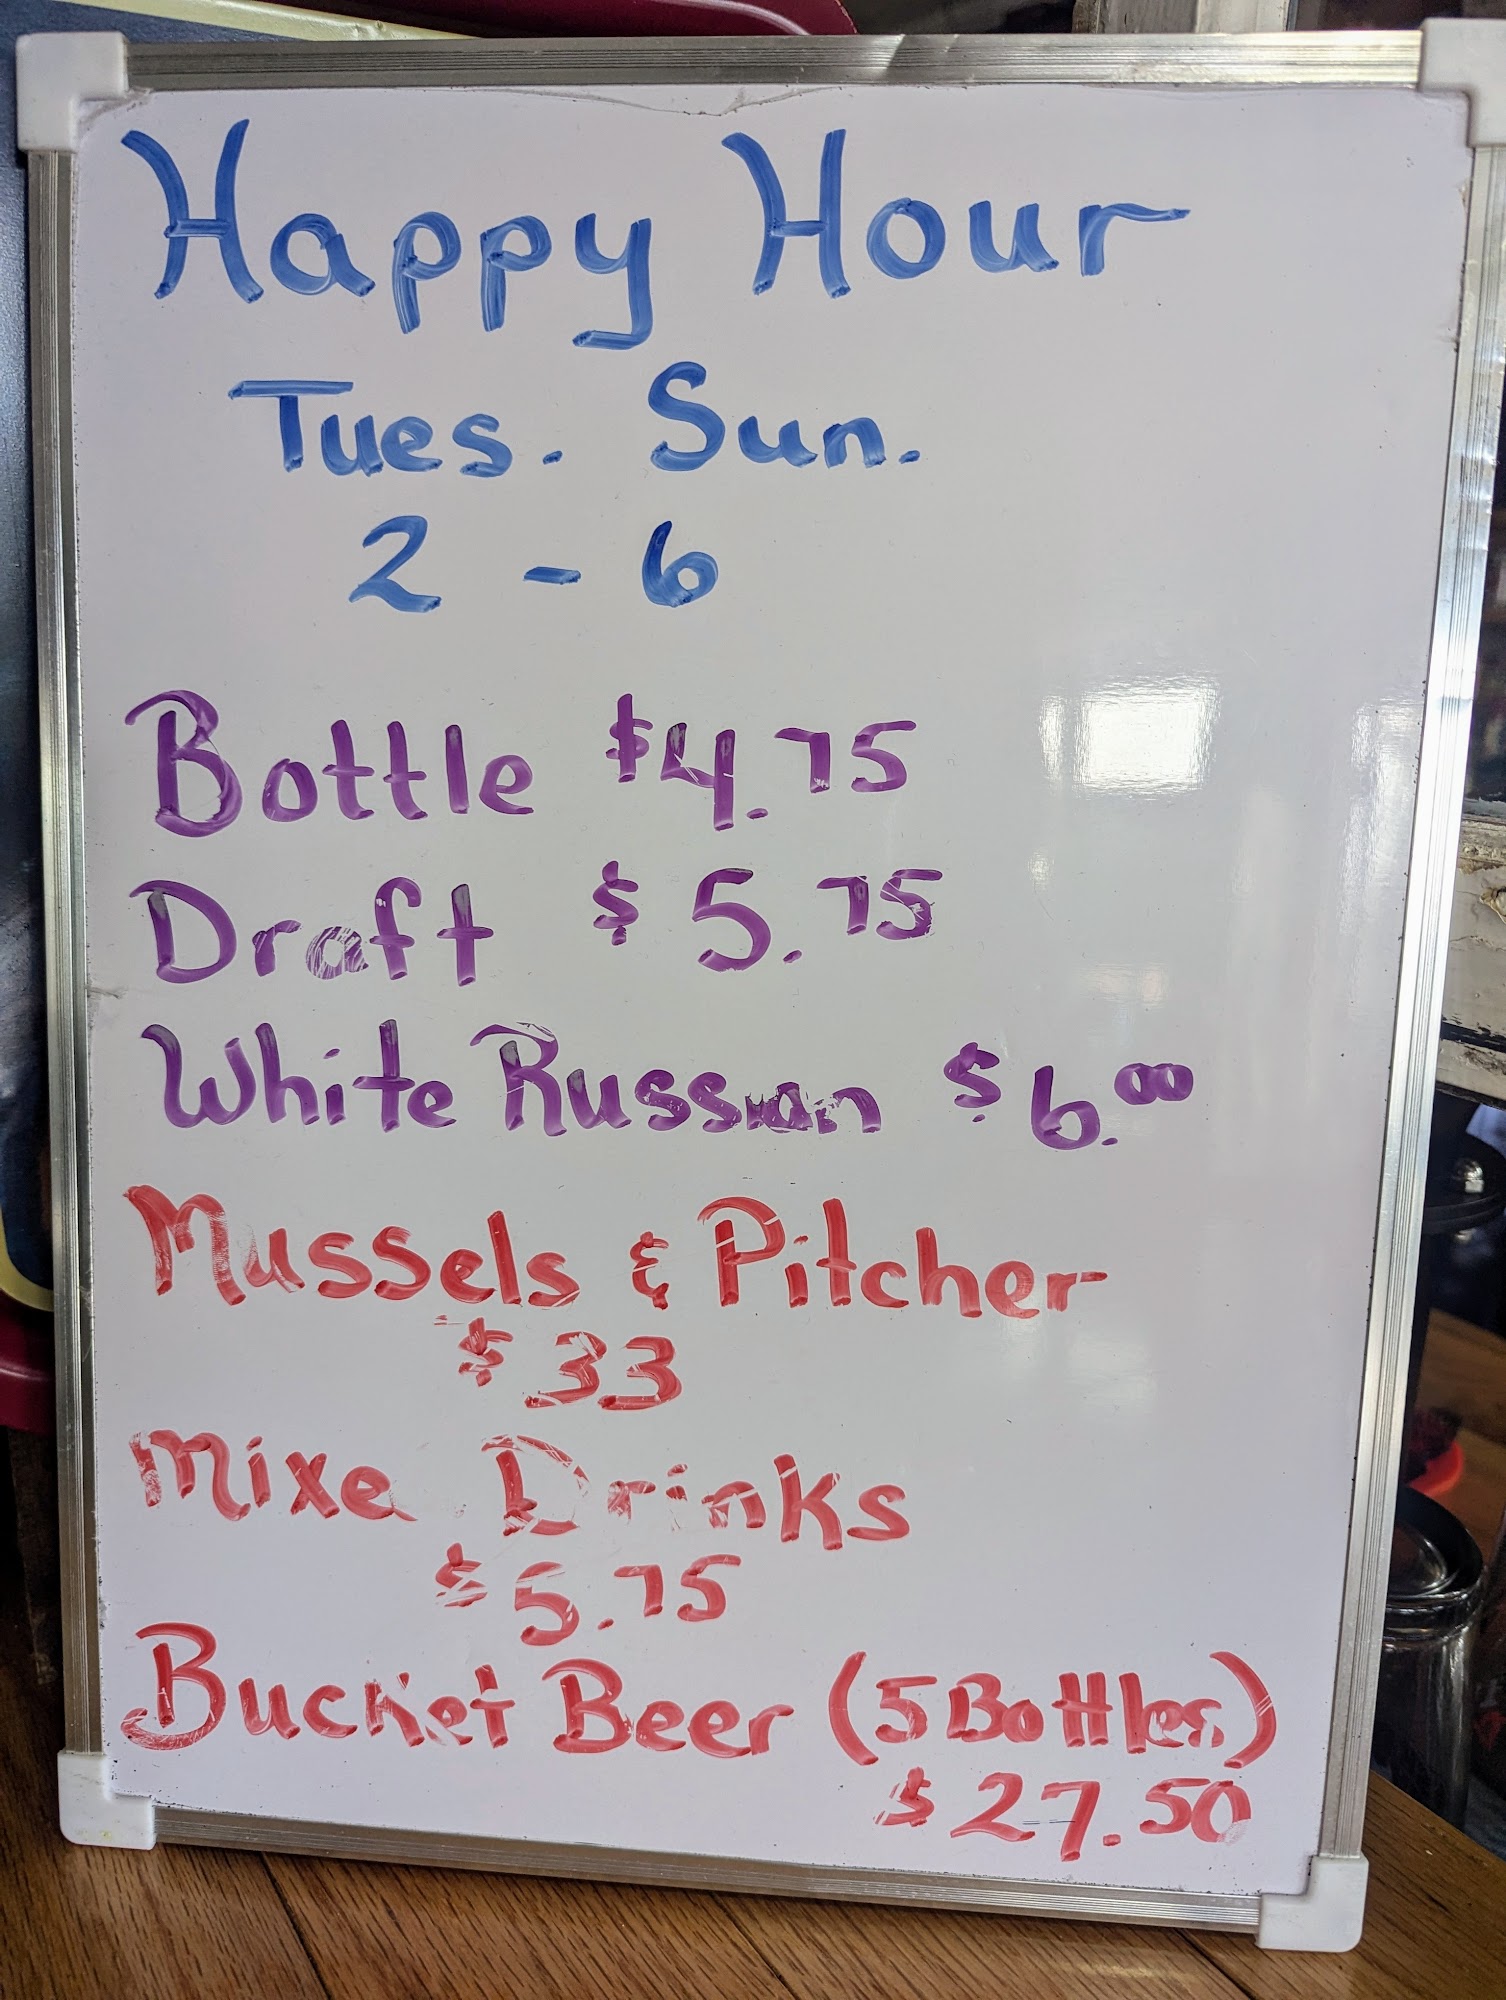 Happy Hour
Tues. Sun.
2 - 6
Bottle $4.75
Draft $5.75
White Russian $6.00
Mussels & Pitcher
$33
Mixe Drinks
$5.75
Bucket Beer (5 Bottles)
$27.50